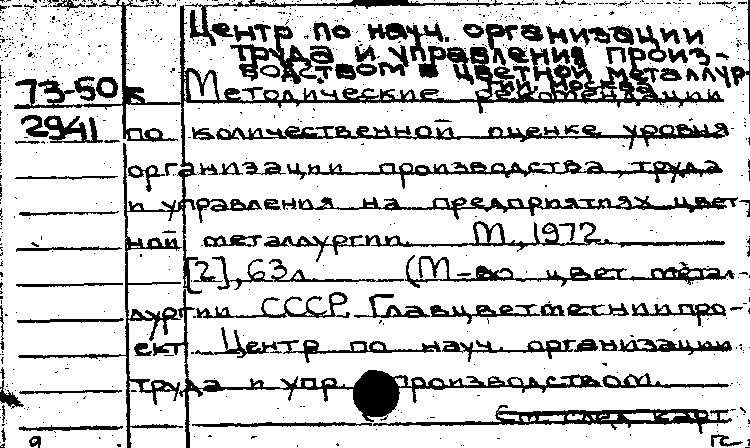 Центр по науч. организации
труда и управления произ-
водством в цветной металлур-
гии. Москва
73-50 Методические рекомендации
2941 по количественной оценке уровня
организации производства, труда
и управления на предприятиях цвет-
ной металлургии. М., 1972.
[2], 63л. (М-во цвет. метал-
лургии СССР. Главцветметниипро-
ект. Центр по науч. организации
труда и упр. производством.
См. след. карт.
9